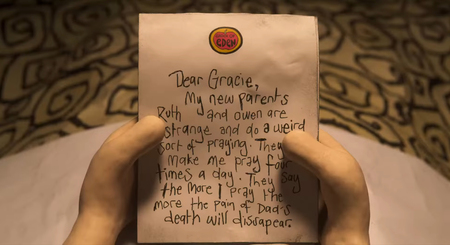 EDEN
Dear Gracie,
My new parents
Ruth and Owen are
strange and do a weird
sort of praying. They
make me pray four
times a day. They say
the more I pray the
more the pain of Dad's
death will dissapear.